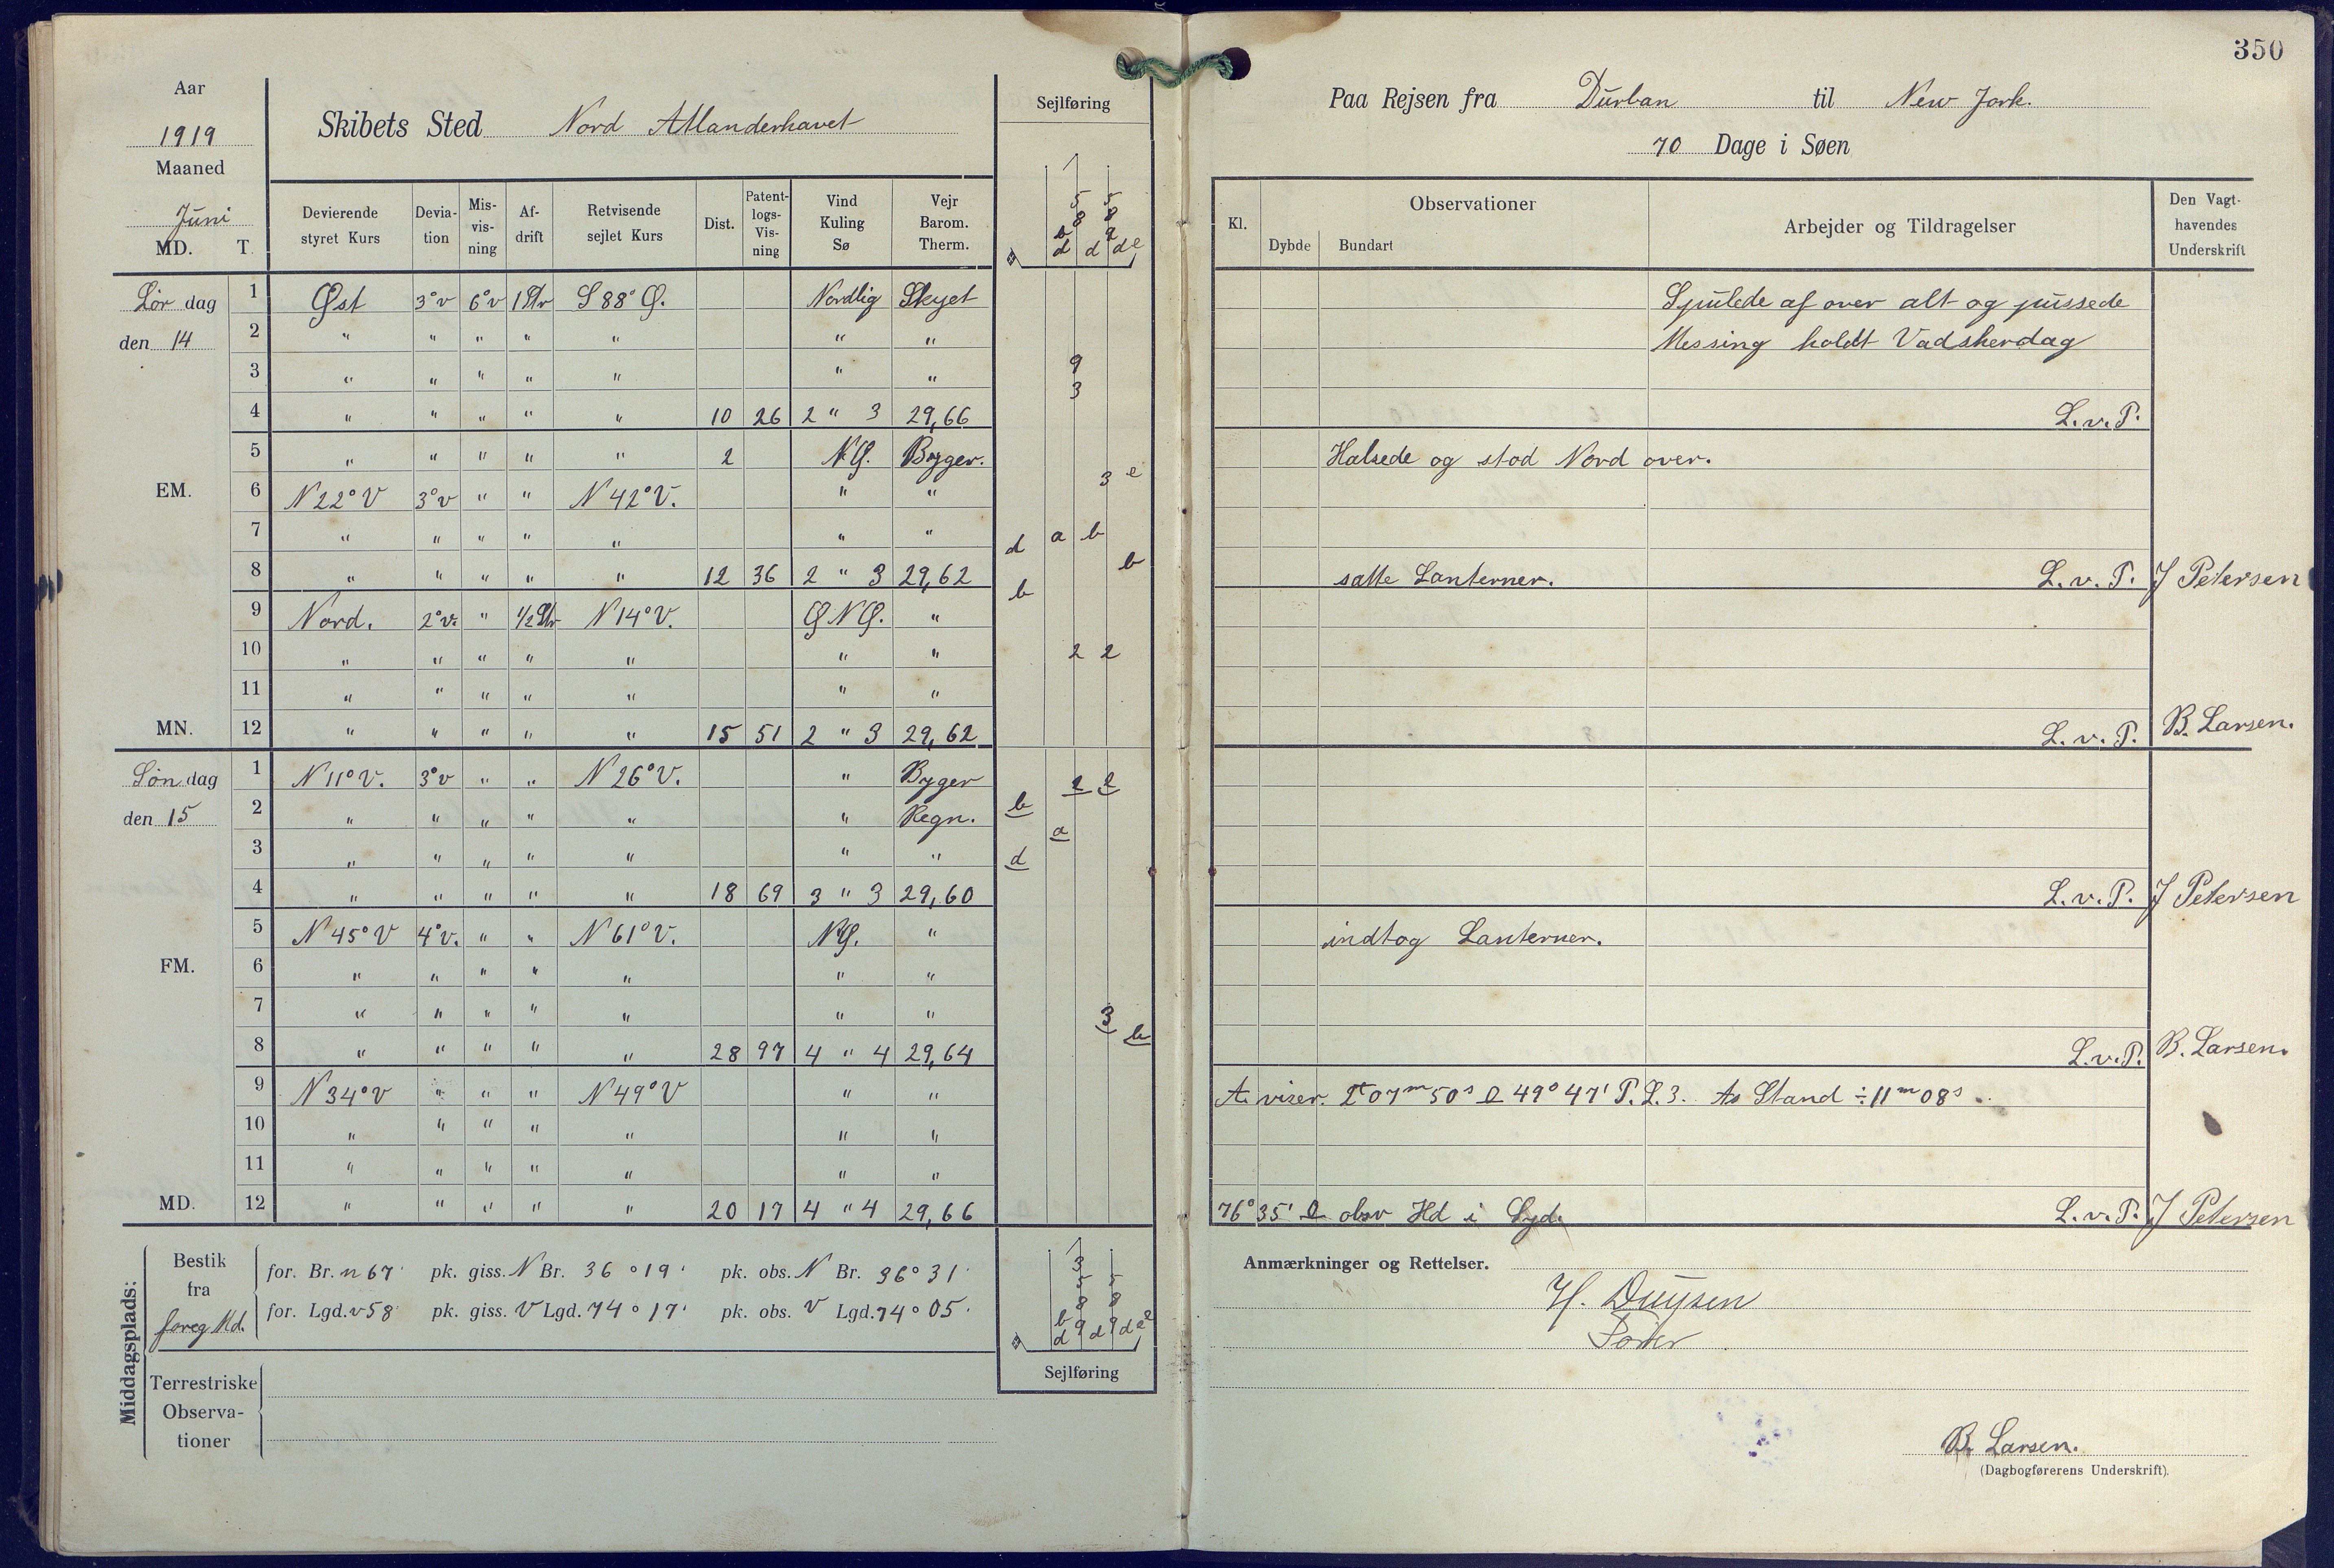 350
Aar
1919
Maaned
Juni
MD. T.
Skibets Sted Nord Atlanderhavet
Sejlføring
Paa Rejsen fra Durban til New Jork.
70 Dage i Søen
Devierende styret Kurs
Devia-tion
Mis-vis-ning
Af-drift
Retvisende sejlet Kurs
Dist.
Patent-logs-Vis-ning
Vind Kuling Sø
Vejr Barom. Therm.
Kl.
Observationer
Dybde Bundart
Arbejder og Tildragelser
Den Vagt-havendes Underskrift
Lør dag 1 Øst 3°v 6°v 1 Str S 88° Ø. Nordlig Skyet Spulede af over alt og pussede
den 14 2 " " " " " " " Messing holdt Vadskerdag
3 " " " " " " " 9
4 " " " " " 10 26 2 " 3 29,66 3 L.v.P.
5 " " " " " 2 NØ. Byger. Halsede og stod Nord over.
EM. 6 N 22° V 3°v " " N 42° V. " " 3 e
7 " " " " " " " d a b
8 " " " " " 12 36 2 " 3 29,62 b satte Lanterner. L.v.P. J Petersen
9 Nord. 2°v. " 1/2 Str N 14° V. Ø N Ø. " b
10 " " " " " " " 2 2
11 " " " " " " "
MN. 12 " " " " " 15 51 2 " 3 29,62 L.v.P. B. Larsen.
Søn dag 1 N 11° V. 3°v " " N 26° V. " Byger 2 2
den 15 2 " " " " " " Regn. b
3 " " " " " " " d a
4 " " " " " 18 69 3 " 3 29,60 L.v.P. J Petersen
5 N 45° V 4°v. " " N 61° V. NØ. " indtog Lanterner.
FM. 6 " " " " " " "
7 " " " " " " " 3
8 " " " " " 28 97 4 " 4 29,64 b L.v.P. B. Larsen.
9 N 34° V " " " N 49° V " " A. viser. 2t 07m 50s 49° 47' P.L.3. As Stand ÷ 11m 08s
10 " " " " " " "
11 " " " " " " "
MD. 12 " " " " " 20 17 4 " 4 29,66 76° 35' obsv Hd i Syd. L.v.P. J Petersen
Middagsplads:
Bestik fra foreg Md.
for. Br. n 67' pk. giss. N Br. 36 ° 19' pk. obs. N Br. 36° 31'
for. Lgd. v 58' pk. giss. V Lgd. 74 ° 17' pk. obs. V Lgd. 74 ° 05'
Terrestriske Observa-tioner
Sejlføring
Anmærkninger og Rettelser.
H. Duysen
B. Larsen.
(Dagbogførerens Underskrift).